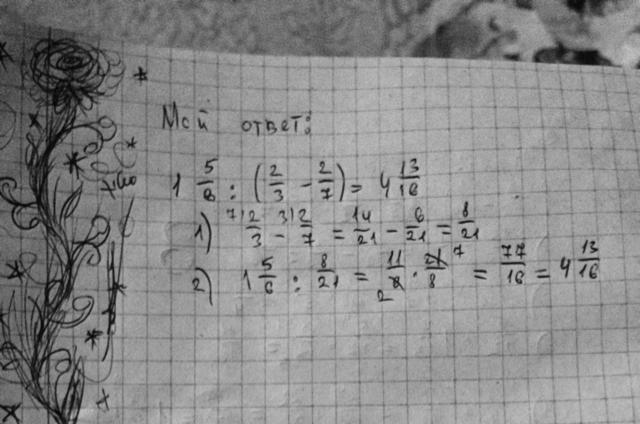 Мой ответ:
1 5/6 : (2/3 - 2/7) = 4 13/16
1) 7) 2/3 - 3) 2/7 = 14/21 - 6/21 = 8/21
2) 1 5/6 : 8/21 = 11/6 2 · 21/8 7 = 77/16 = 4 13/16